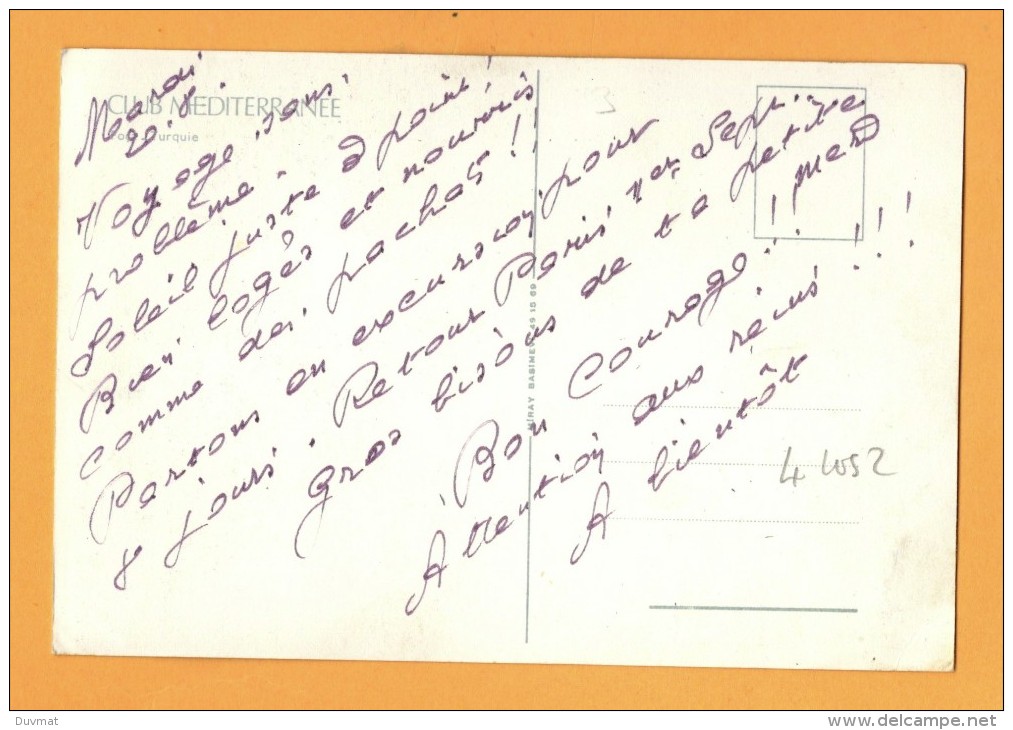 CLUB MEDITERRANÉE
Turquie
Mardi
Voyage sans
problème.
Soleil juste à point!
Bien logés et nourris
comme des pachas!!
Partons en excursion pour
8 jours. Retour Paris 1er Sept.
Gros bisous de ta petite
Bon Courage!!
Attention aux reins!!!
A bientôt
MİRAY BASIMEVİ 49 15 69
3
Duvmat
www.delcampe.net